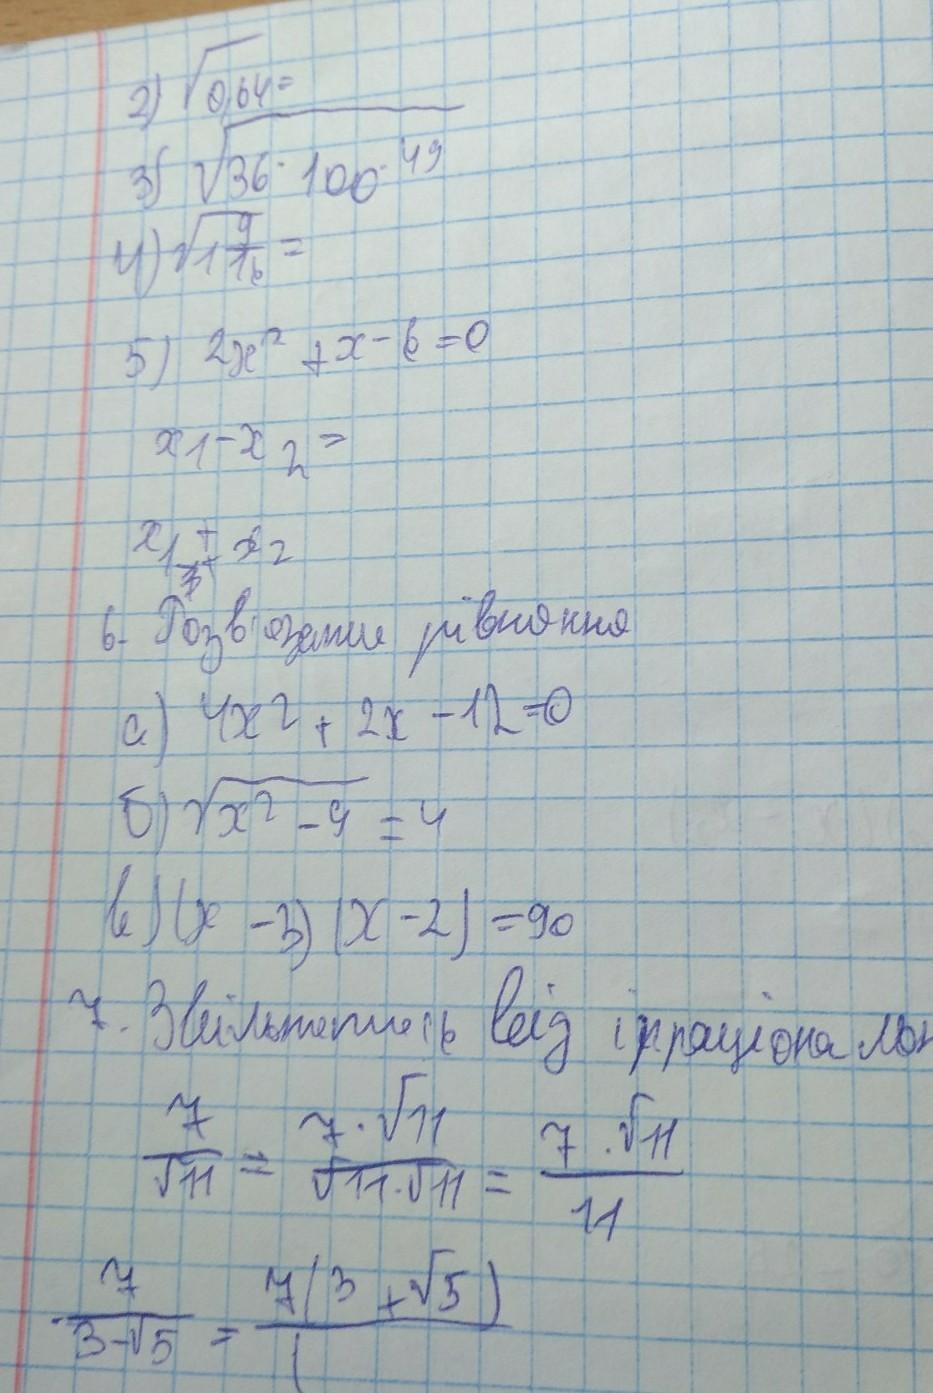 2) √0,64 =
3) √36 · 100 · 49
4) √1 9/16 =
5) 2x² + x - 6 = 0
x₁ - x₂ =
x₁ + x₂
6. Розв'язати рівняння
а) 4x² + 2x - 12 = 0
б) √x² - 9 = 4
в) (x - 3) (x - 2) = 90
7. Звільнитись від ірраціональн
7/√11 = 7 · √11/√11 · √11 = 7 · √11/11
7/3 - √5 = 7(3 + √5)/(